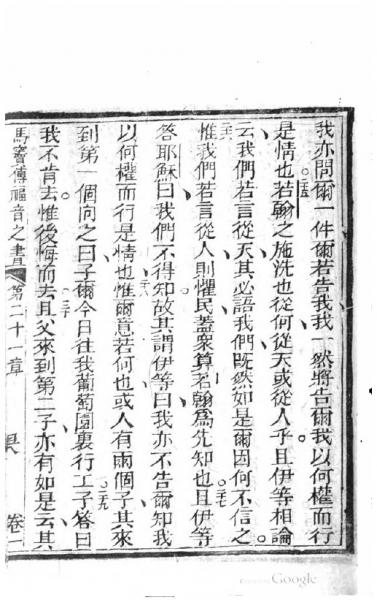 我亦問爾一件爾若告我我一然將告爾我以何權而行
二五
是情也若翰之施洗也從何從天或從人乎且伊等相論
云我們若言從天其必語我們既然如是爾因何不信之
二六
惟我們若言從人則懼民蓋衆算若翰爲先知也且伊等
二七
答耶穌曰我們不得知故其謂伊等曰我亦不告爾知我
二八
以何權而行是情也惟爾意若何也或人有兩個子其來
到第一個向之曰子爾今日往我葡萄園裏行工子答曰
二九
我不肯去惟後悔而去且父來到第二子亦有如是云其
三十
馬竇傳福音之書 第二十一章 卷一
Google